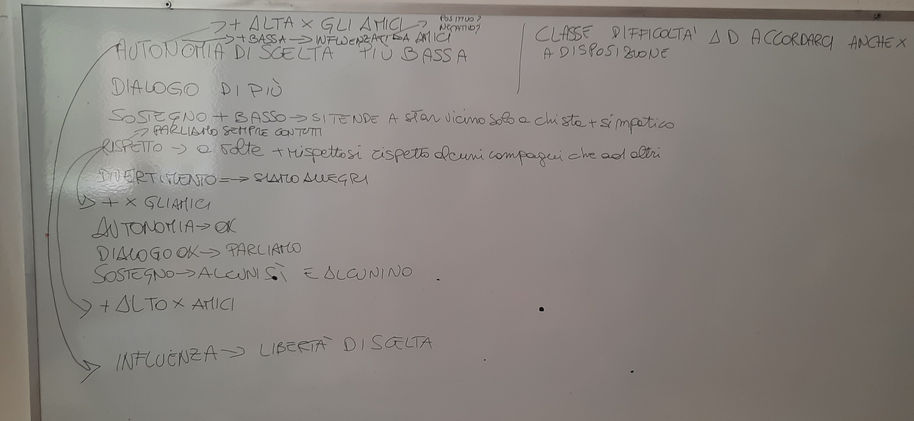 → + ALTA × GLI AMICI → POSITIVO? NEGATIVO?
→ + BASSA → INFLUENZATI DA AMICI
AUTONOMIA DI SCELTA PIÙ BASSA
DIALOGO DI PIÙ
SOSTEGNO + BASSO → SI TENDE A star vicino solo a chi sta + simpatico
→ PARLIAMO SEMPRE CON TUTTI
RISPETTO → a volte + rispettosi rispetto alcuni compagni che ad altri
DIVERTIMENTO = → SIAMO ALLEGRI
→ + × GLI AMICI
AUTONOMIA → OK
DIALOGO OK → PARLIAMO
SOSTEGNO → ALCUNI SÌ E ALCUNI NO
→ + ALTO × AMICI
→ INFLUENZA → LIBERTÀ DI SCELTA
CLASSE DIFFICOLTÀ A D ACCORDARCI ANCHE ×
A DISPOSIZIONE